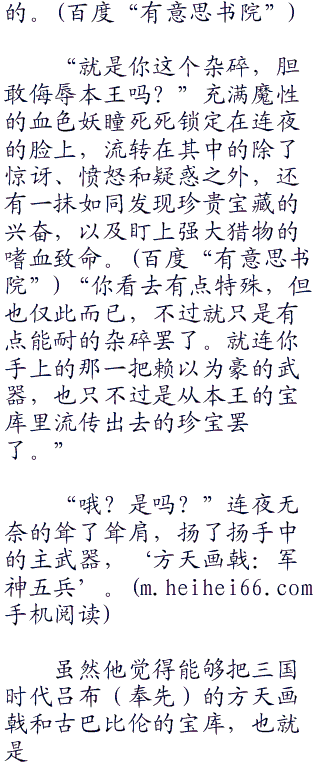 的。(百度“有意思书院”)
“就是你这个杂碎，胆
敢侮辱本王吗？”充满魔性
的血色妖瞳死死锁定在连夜
的脸上，流转在其中的除了
惊讶、愤怒和疑惑之外，还
有一抹如同发现珍贵宝藏的
兴奋，以及盯上强大猎物的
嗜血致命。(百度“有意思书
院”)“你看去有点特殊，但
也仅此而已，不过就只是有
点能耐的杂碎罢了。就连你
手上的那一把赖以为豪的武
器，也只不过是从本王的宝
库里流传出去的珍宝罢
了。”
“哦？是吗？”连夜无
奈的耸了耸肩，扬了扬手中
的主武器，‘方天画戟：军
神五兵’。(m.heihei66.com
手机阅读)
虽然他觉得能够把三国
时代吕布（奉先）的方天画
戟和古巴比伦的宝库，也就
是